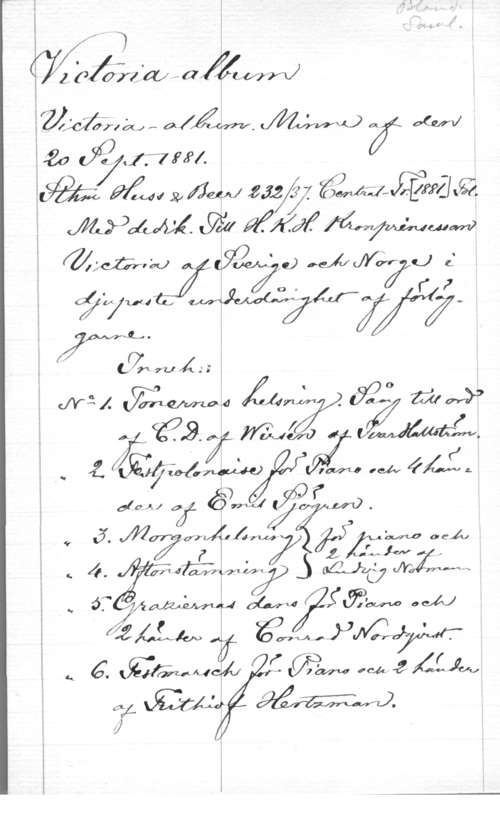 Bland.
Saml.
Victoria-album
Victoria-album. Minne af den
20 Sept. 1881.
Sthm Huss & Beer 232/37. Central-Tr. [1881] Fol.
Med dedik. Till H.K.H. Kronprinsessan
Victoria af Sverige och Norge i
djupaste underdånighet af förläg-
garne.
Inneh.:
No 1. Tonernas helsning. Sång till ord
af C.D. af Wirsén af Ivar Hallström.
" 2. Festpolonaise för Piano och 4 hän-
der af Emil Sjögren.
" 3. Morgonhelsning } för piano och
2 händer af
" 4. Aftonstämning } Ludvig Norman
" 5. Graziernas dans för Piano och
2 händer af Conrad Nordqvist.
" 6. Festmarsch för Piano och 2 händer
af Frithiof Hertzman.